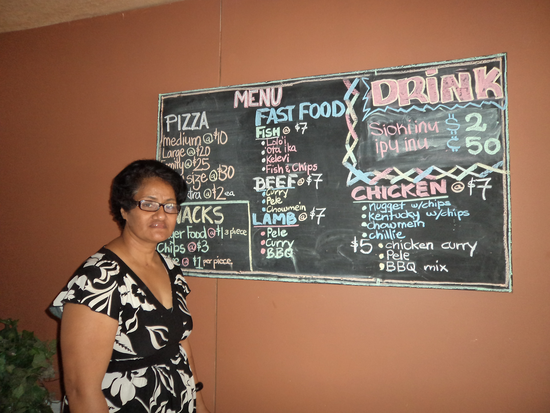 MENU
PIZZA
medium @ $10
Large @ $20
@ $25
size @ $30
@ $2 ea
ACKS
ger Food @ $1.3 piece
Chips @ $3
@ $1 per piece
FAST FOOD
FISH @ $7
• Lolo'i
• Ota ika
• Kelevi
• Fish & Chips
BEEF @ $7
• Curry
• Pele
• Chowmein
LAMB @ $7
• Pele
• Curry
• BBQ
DRINK
Siokiinu 2
ipu inu 50
CHICKEN @ $7
• nugget w/chips
• Kentucky w/chips
• chowmein
• chillie
$5 • chicken curry
• Pele
• BBQ mix